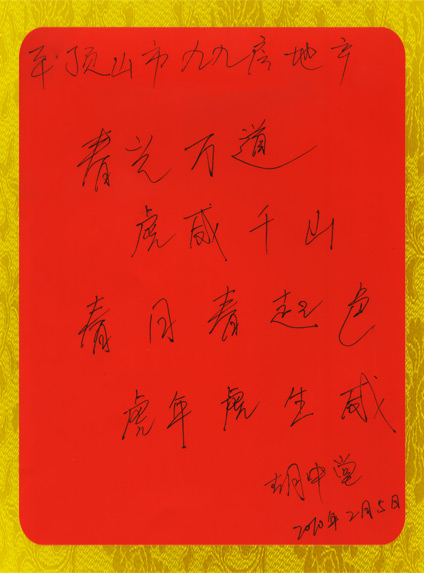 平顶山市九九房地产
春光万道
虎威千山
春日春起色
虎年虎生威
胡中堂
2010年2月5日